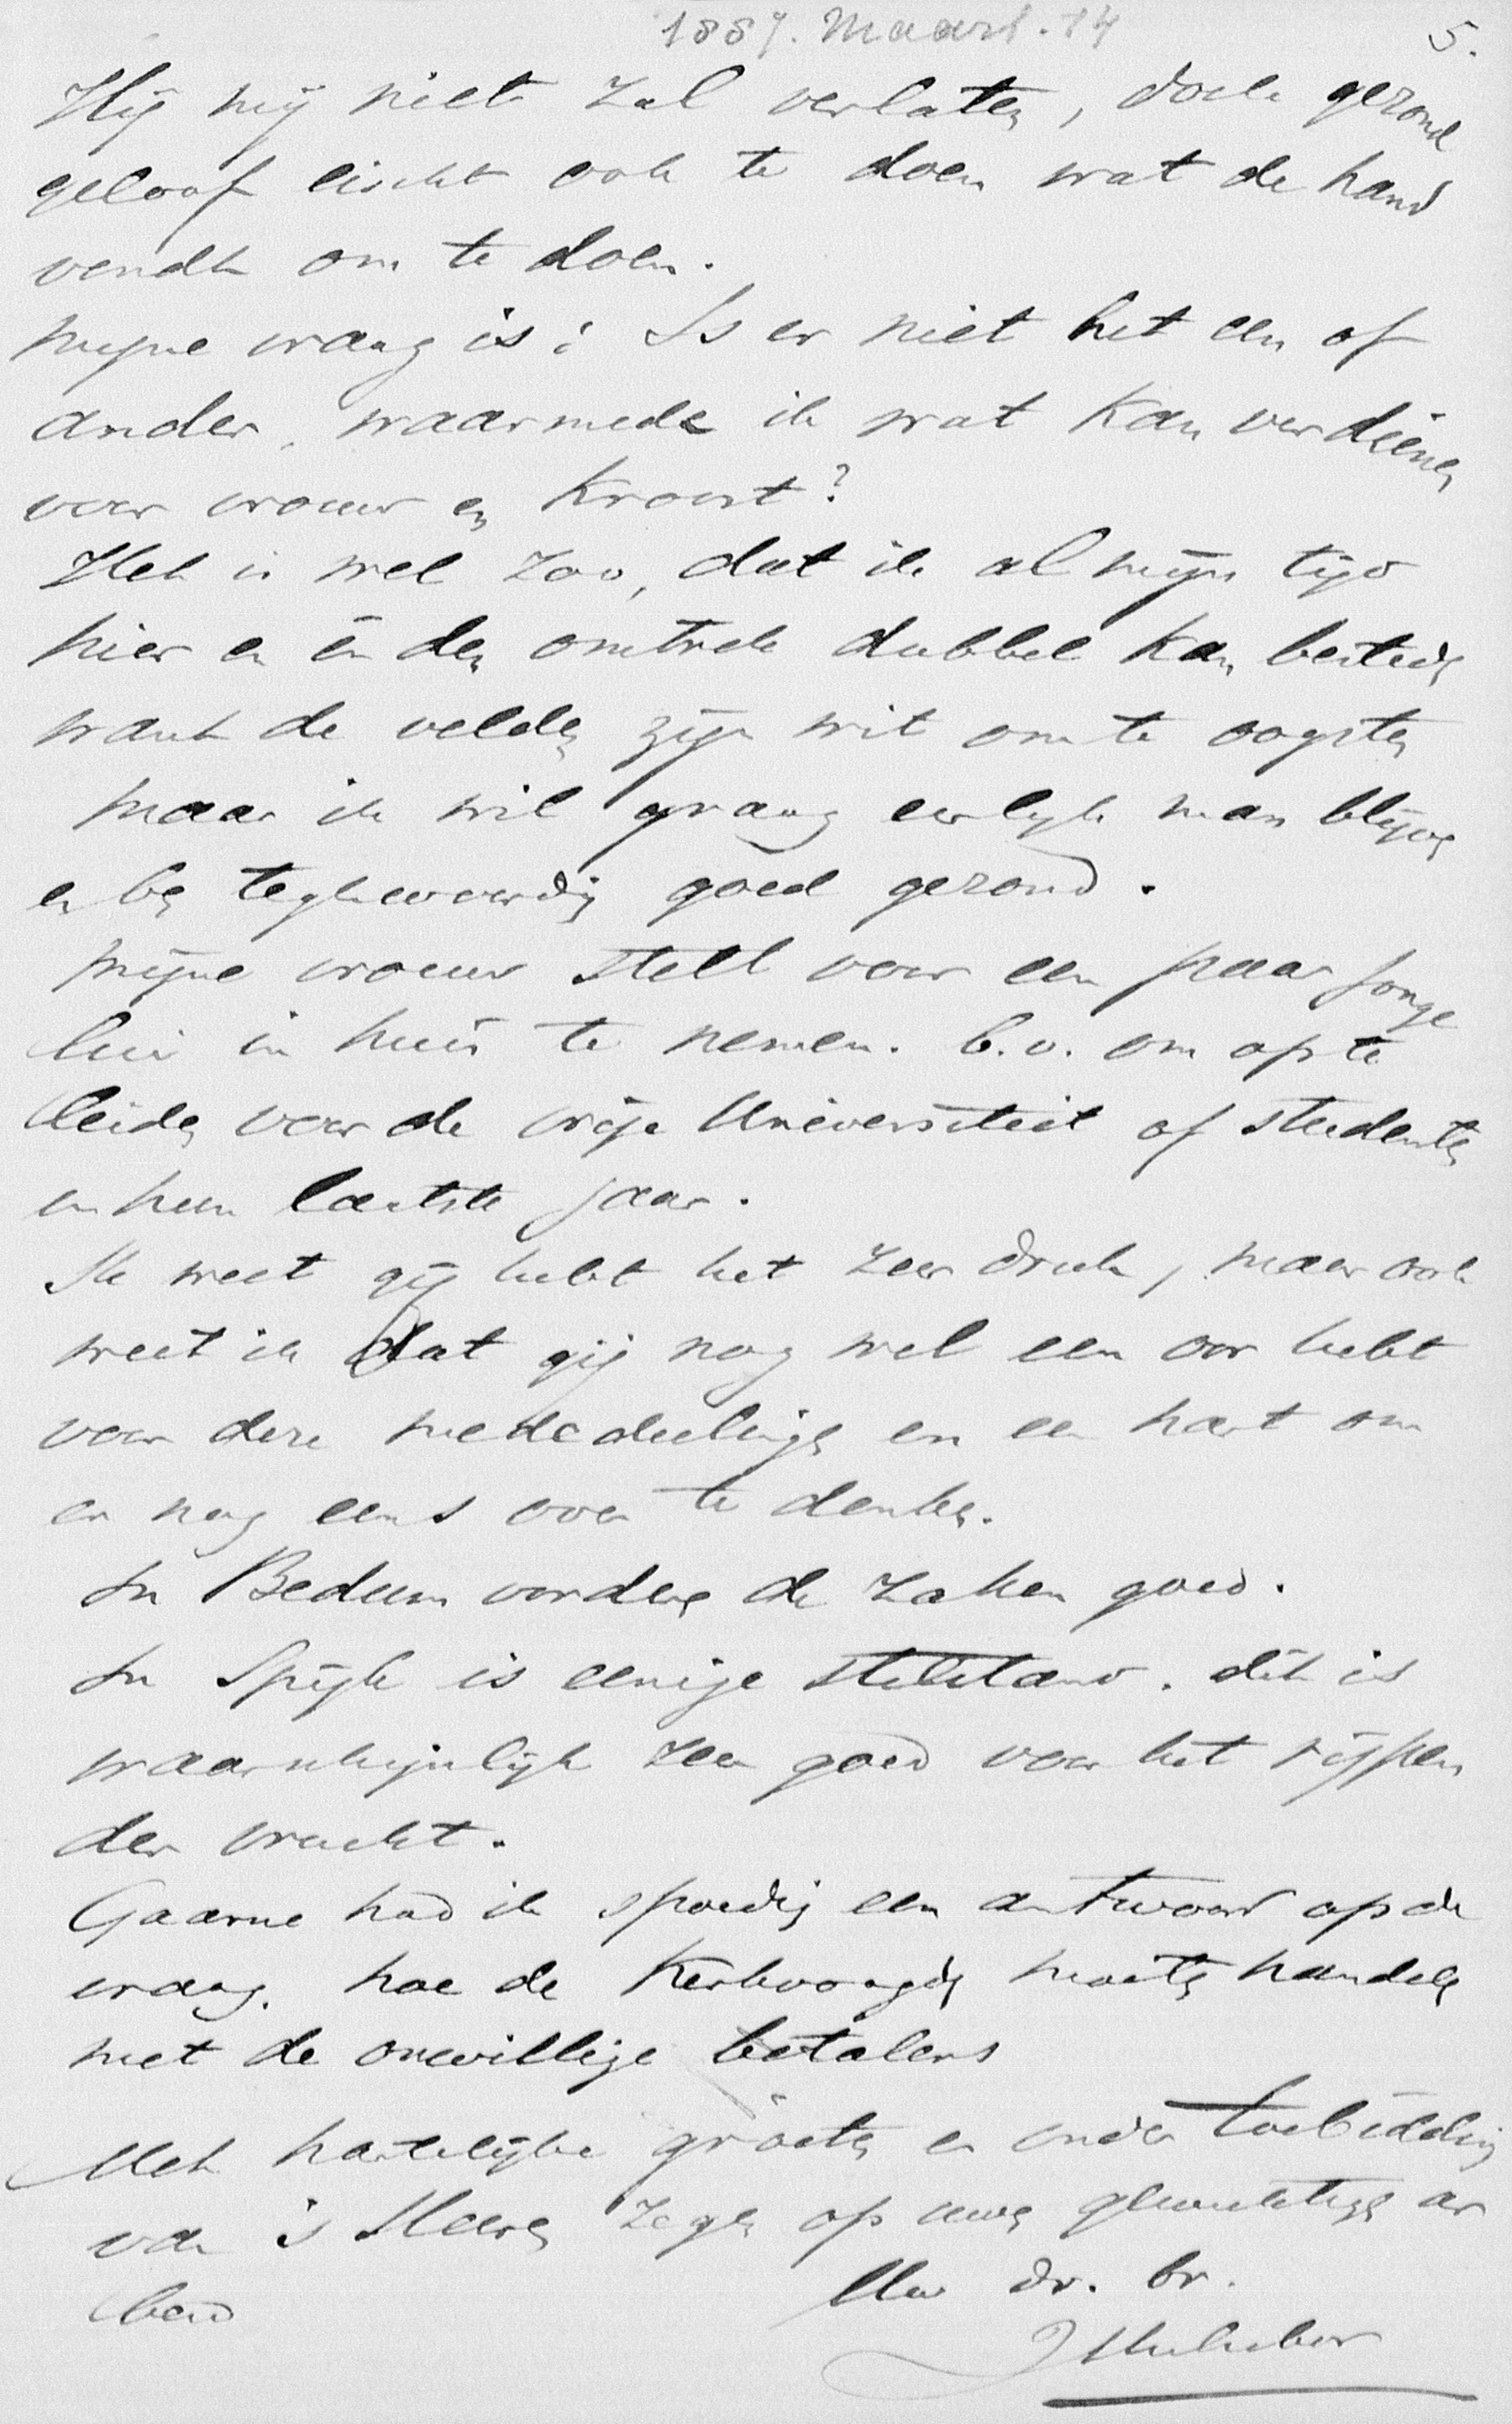 1887. Maart. 14
5.
Hij mij niet zal verlaten, doch gezond
geloof eischt ook te doen wat de hand
vendt om te doen.
Mijne vraag is: Is er niet het een of
ander, waarmede ik wat kan verdienen
voor vrouw en kroost?
Het is wel zoo, dat ik al mijn tijd
hier en in den omtrek dubbel kan besteden
want de velden zijn wit om te oogsten
maar ik wil graag eerlijk man blijven
en ben tegenwoordig goed gezond.
Mijne vrouw stelt voor een paar jonge
lui in huis te nemen. b.v. om op te
leiden voor de vrije Universiteit of studenten
in hun laatste jaar.
Ik weet gij hebt het zeer druk, maar ook
weet ik dat gij nog wel een oor hebt
voor deze mededeelingen en een hart om
er nog eens over te denken.
In Bedum vorderen de zaken goed.
In Spijk is eenige stilstand. dit is
waarschijnlijk zeer goed voor het rijpen
der vrucht.
Gaarne had ik spoedig een antwoord op de
vraag. hoe de Kerkvoogden moeten handelen
met de onwillige betalers
Met hartelijke groeten en onder toebidding
van 's Heeren Zegen op uwen gewichtigen ar
beid
Uw dr. br.
J Hulsebos